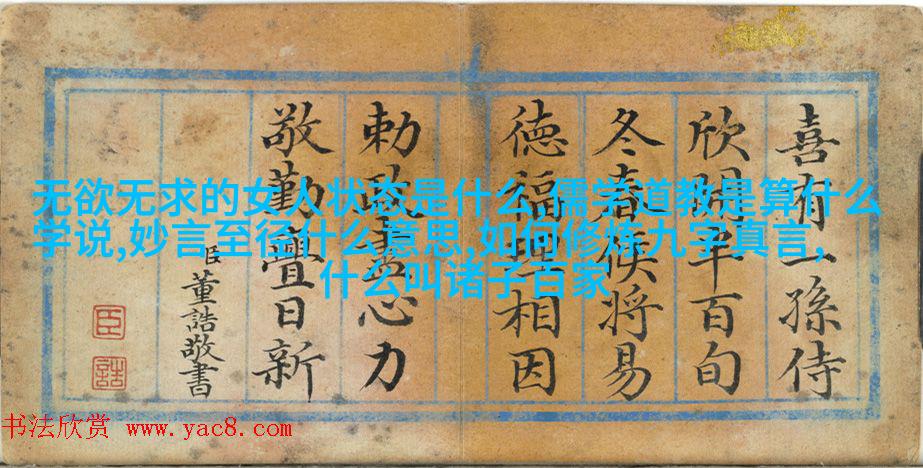 无欲无求的女人状态是什么,儒学道教是算什么
学说,妙言至径什么意思,如何修炼九字真言,
什么叫诸子百家
喜有一孫侍
欣開半百旬
冬春候将易
徳福理相因
勅政盡心力
敬勤疊日新
臣董誥敬書
臣
誥
书法欣赏 www.yac8.com